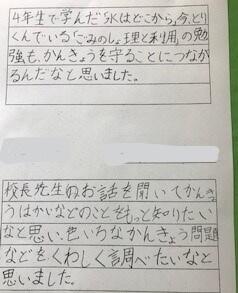 4年生で学んだ「水はどこから」、今、とり
くんでいる「ごみのしょ理と利用」の勉
強も、かんきょうを守ることにつなが
るんだなと思いました。
校長先生のお話を聞いてかんきょ
うはかいなどのことをもっと知りたい
なと思い、色いろなかんきょう問題
などをくわしく調べたいなと
思いました。